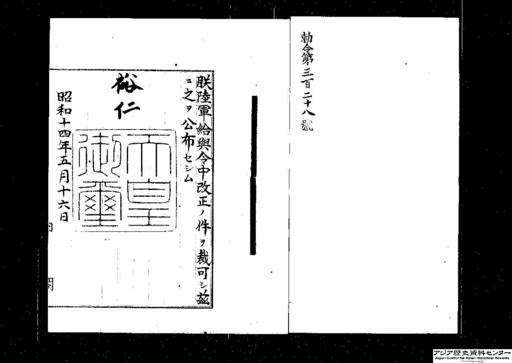 勅令第三百二十八號
朕陸軍給與令中改正ノ件ヲ裁可シ茲
ニ之ヲ公布セシム
裕仁
天皇
御璽
昭和十四年五月十六日
内閣
アジア歴史資料センター
Japan Center for Asian Historical Records